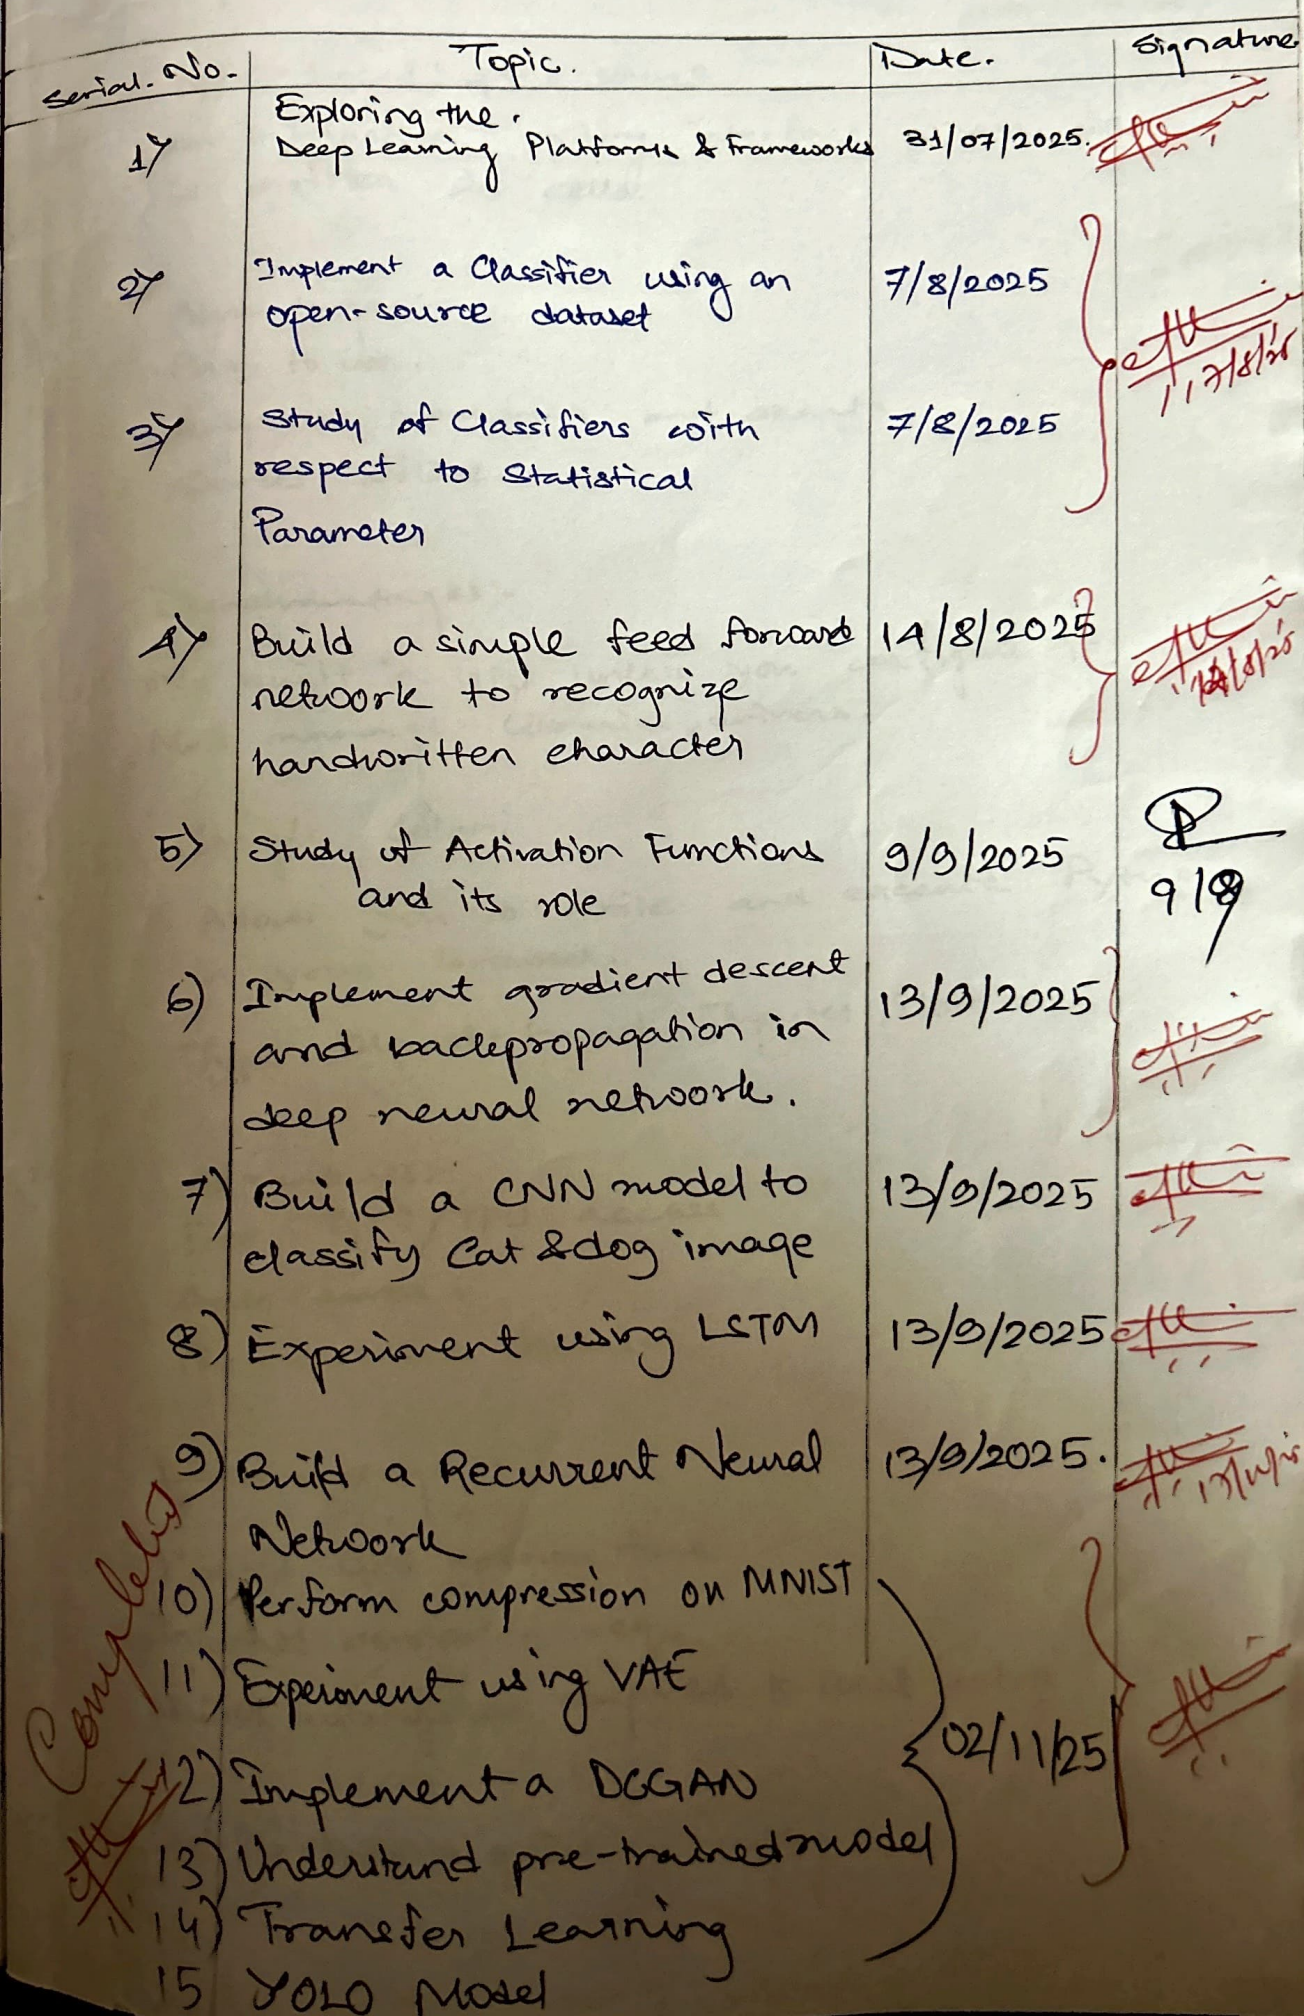 Serial. No. Topic. Date. Signature
1) Exploring the
Deep Learning Platforms & Frameworks 31/07/2025.
2) Implement a Classifier using an 7/8/2025
open-source dataset
7/8/25
3) Study of Classifiers with 7/8/2025
respect to Statistical
Parameter
4) Build a simple feed forward 14/8/2025
network to recognize
14/8/25
handwritten character
5) Study of Activation Functions 9/9/2025
and its role
9/9
6) Implement gradient descent 13/9/2025
and backpropagation in
deep neural network.
7) Build a CNN model to 13/9/2025
classify Cat & dog image
8) Experiment using LSTM 13/9/2025
9) Build a Recurrent Neural 13/9/2025.
Network
10) Perform compression on MNIST
11) Experiment using VAE
02/11/25
12) Implement a DCGAN
13) Understand pre-trained model
14) Transfer Learning
15 YOLO Model
Completed